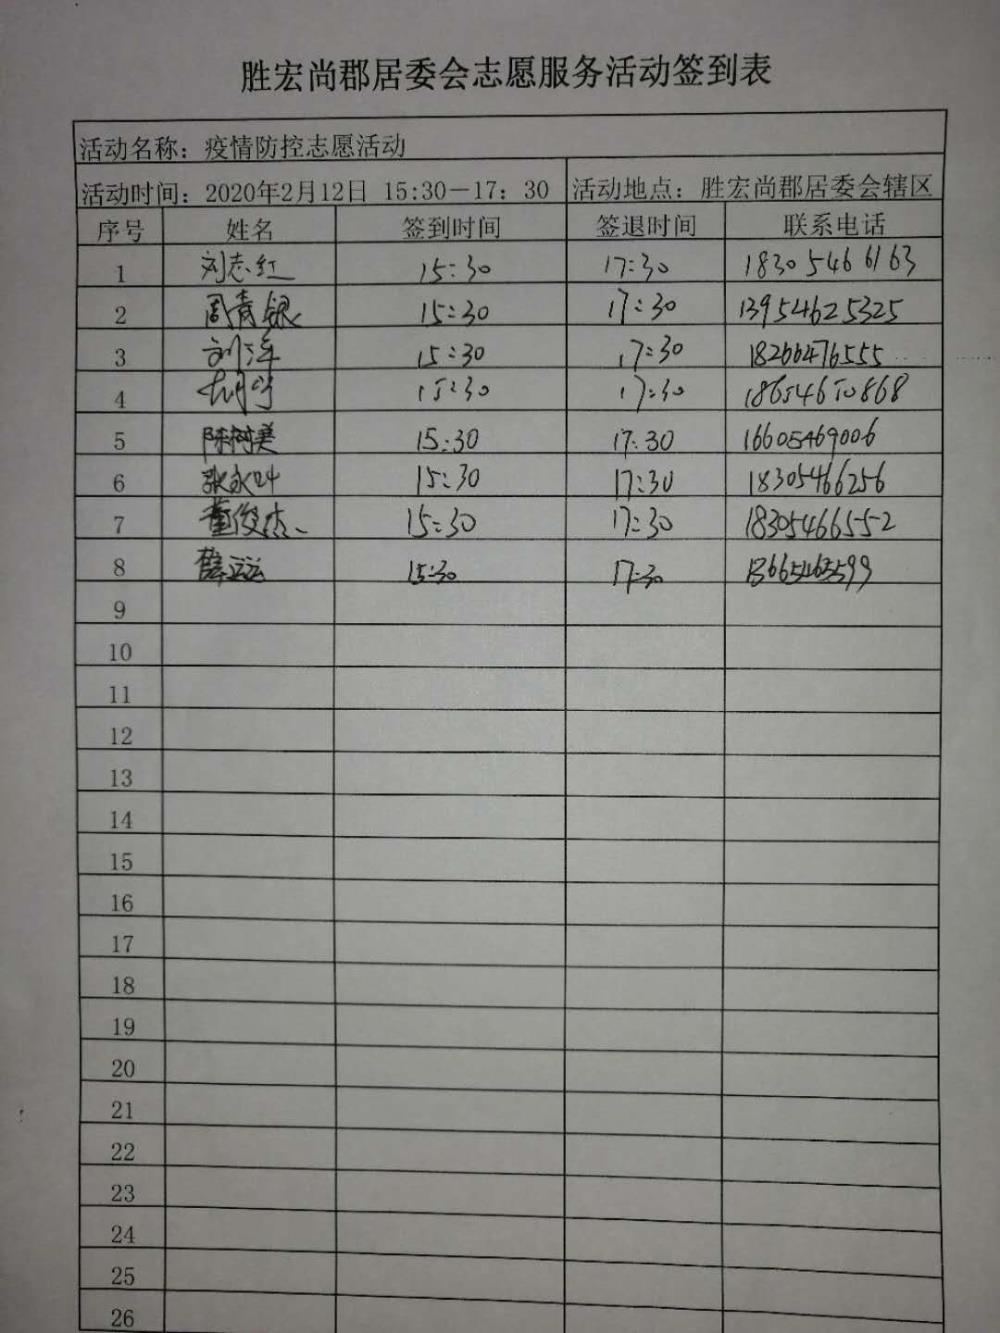 胜宏尚郡居委会志愿服务活动签到表
活动名称：疫情防控志愿活动
活动时间：2020年2月12日 15:30－17：30 活动地点：胜宏尚郡居委会辖区
序号 姓名 签到时间 签退时间 联系电话
1 刘志红 15:30 17:30 18305466163
2 周青银 15:30 17:30 13954625325
3 刘洋 15:30 17:30 18266476555
4 15:30 17:30 18654650868
5 陈树美 15:30 17:30 16605469006
6 张永叶 15:30 17:30 18305466256
7 董俊杰 15:30 17:30 18305466552
8 薛运运 15:30 17:30
9
10
11
12
13
14
15
16
17
18
19
20
21
22
23
24
25
26